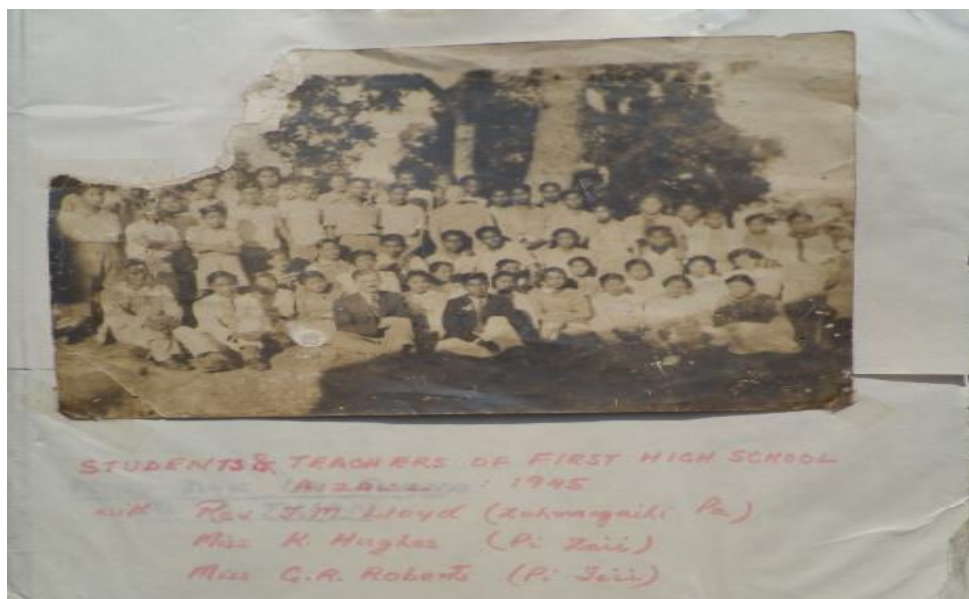 STUDENTS & TEACHERS OF FIRST HIGH SCHOOL
AIZAWL : 1945
with Rev J.M. Lloyd (Zohmangaihi Pa)
Miss K. Hughes (Pi Zaii)
Miss G.R. Roberts (Pi Teii)